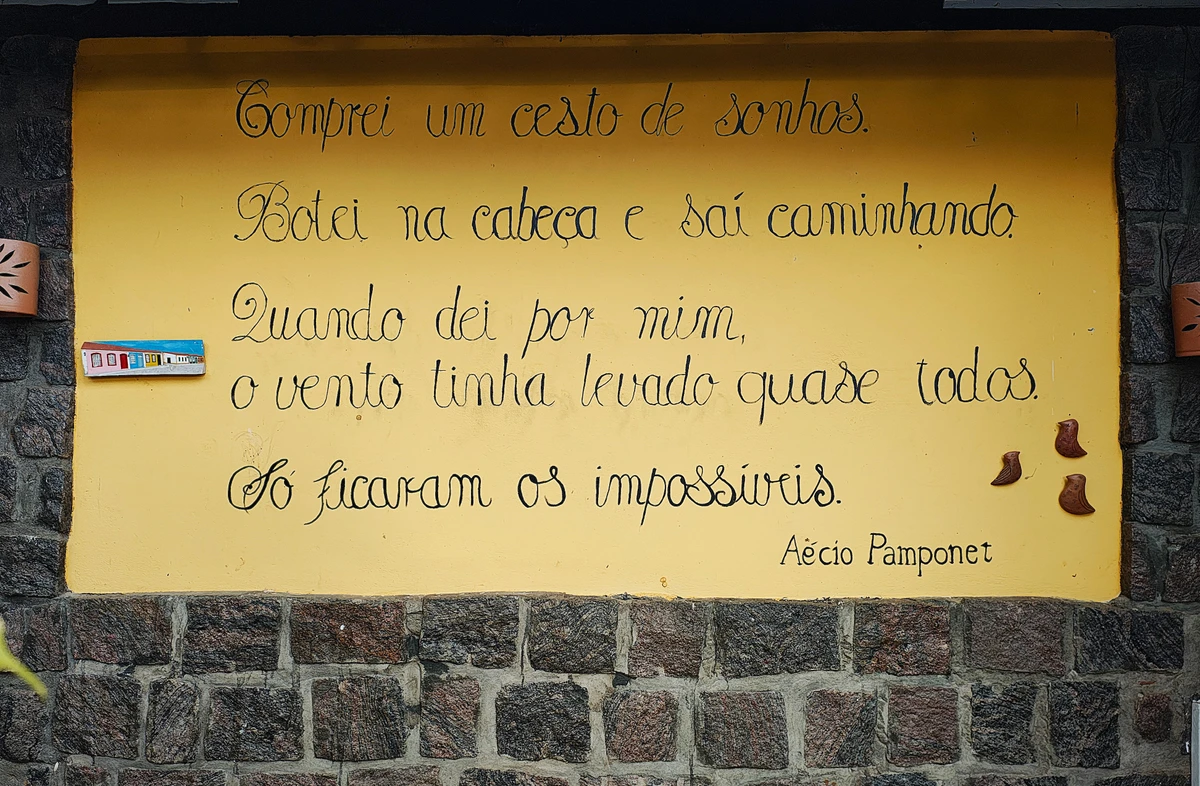 Comprei um cesto de sonhos.
Botei na cabeça e saí caminhando.
Quando dei por mim,
o vento tinha levado quase todos.
Só ficaram os impossíveis.
Aécio Pamponet